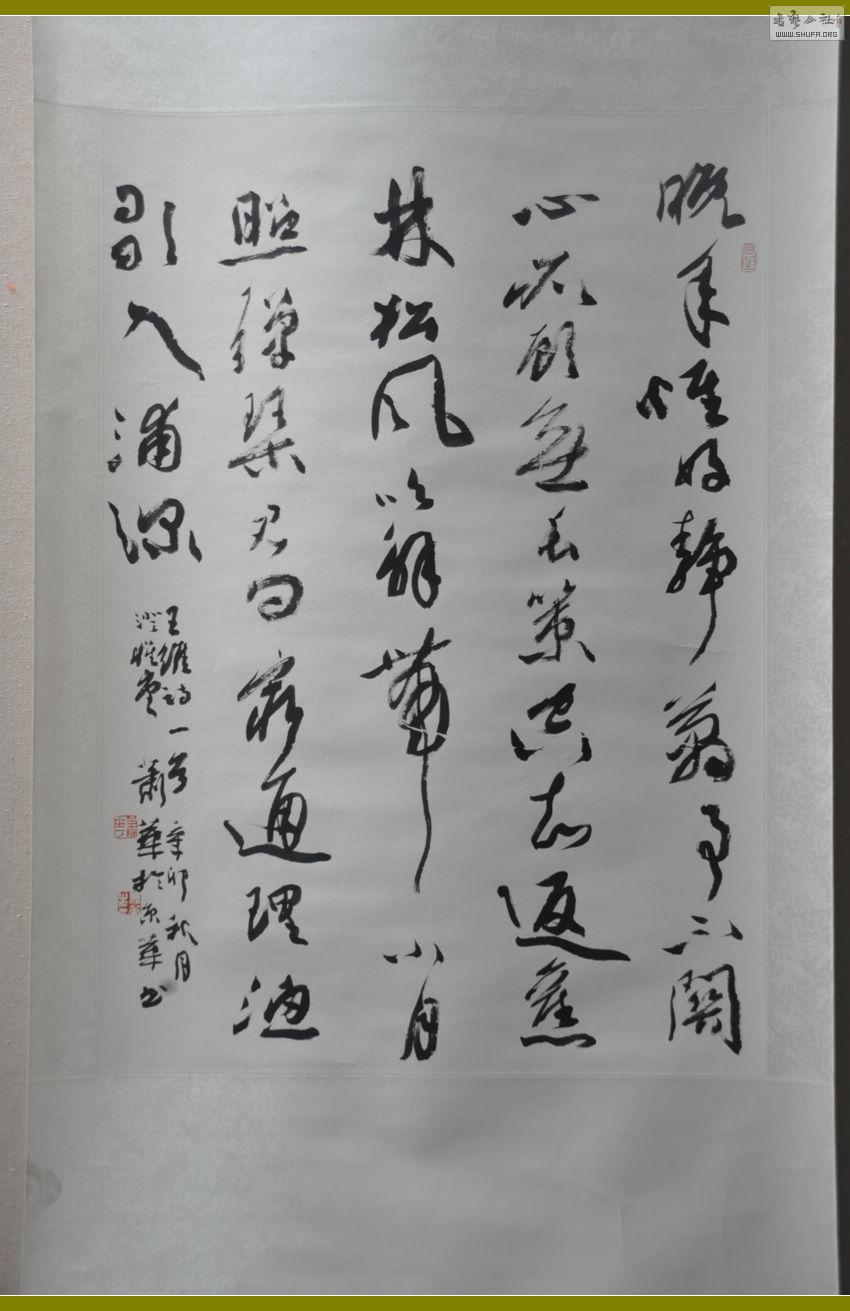 晚年惟好靜萬事不關
心顧無長策空知返舊
林松風吹解帶山月
照彈琴君問窮通理漁
歌入浦深
王維詩一首辛卯秋月
澄懷堂蕭華於京華書
书艺公社
WWW.SHUFA.ORG